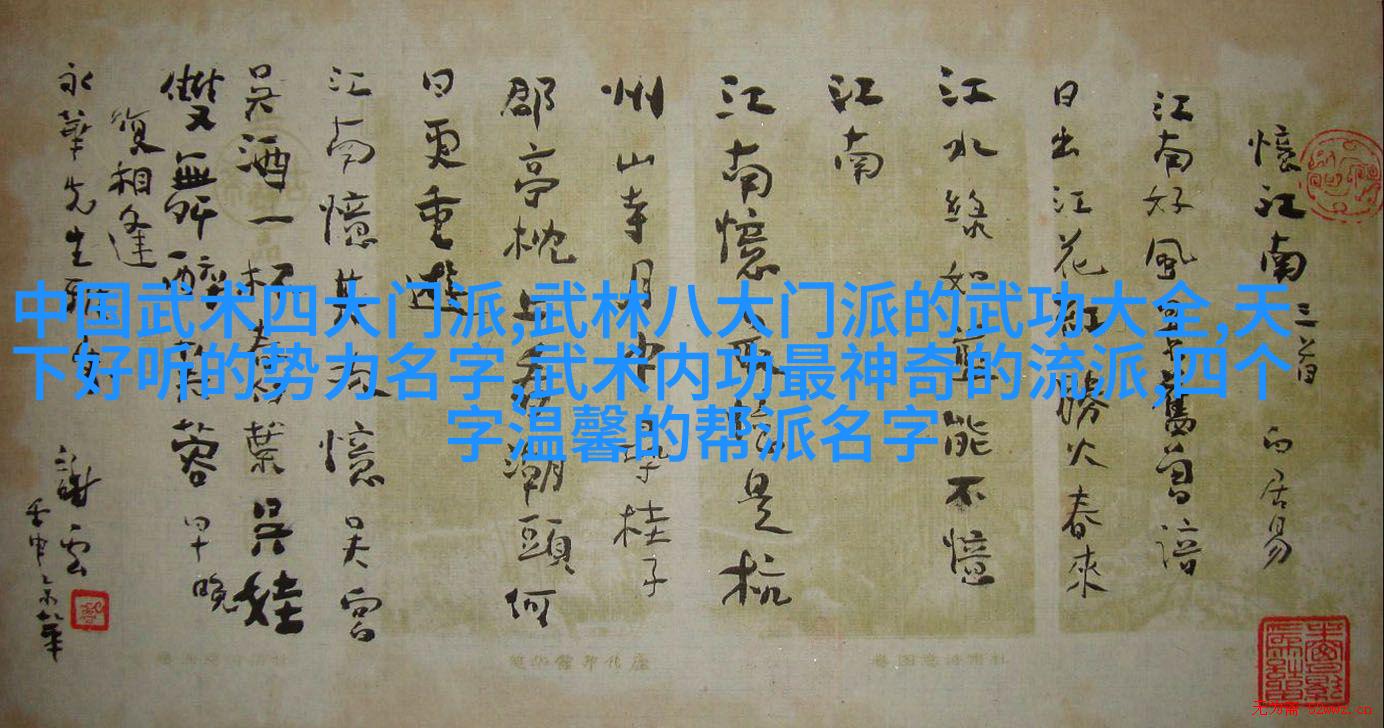 憶江南 三首 白居易
江南好風景舊曾諳
日出江花紅勝火春來
江水綠如藍能不憶
江南
江南憶最憶是杭
州山寺月中尋桂子
郡亭枕上看潮頭何
日更重遊
江南憶其次憶吳宮
吳酒一杯春竹葉吳娃
雙舞醉芙蓉早晚
復相逢
永華先生
謝雲
壬申京華
中国武术四大门派,武林八大门派的武功大全,天
下好听的势力名字,武术内功最神奇的流派,四个
字温馨的帮派名字